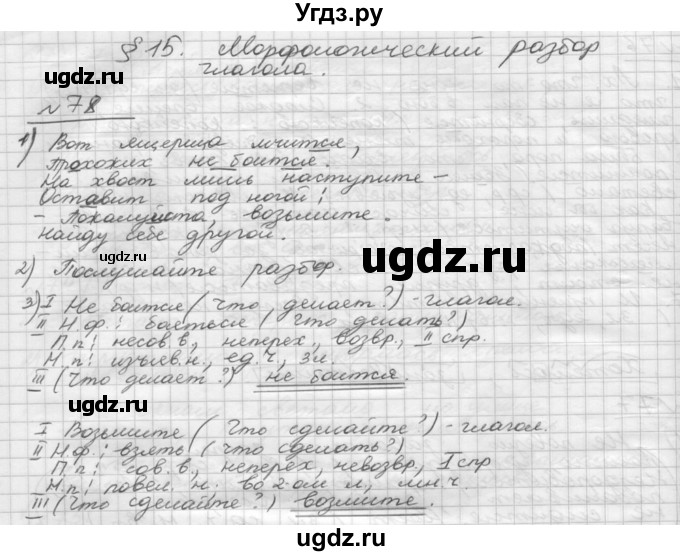 Угдз.ру
§ 15. Морфологический разбор
глагола.
ugdz.ru
№78
1) Вот ящерица мчится,
Прохожих не боится.
На хвост лишь наступите –
Оставит под ногой;
– Пожалуйста, возьмите.
Найду себе другой.
ugdz.ru
2) Послушайте разбор.
3) I Не боится (что делает?) - глагол.
II Н.ф.: бояться (что делать?)
П.п: несов.в, неперех, возвр, II спр.
Н.п: изъяв.н., ед.ч, 3л.
III (Что делает?) не боится.
ugdz.ru
I Возьмите (Что сделайте?) - глагол.
II Н.ф: взять (что сделать?)
П.п: сов.в., неперех, невозвр, I спр
Н.п: повел. н. во 2-ом л, мн.ч.
III (Что сделайте?) возмите.
ugdz.ru